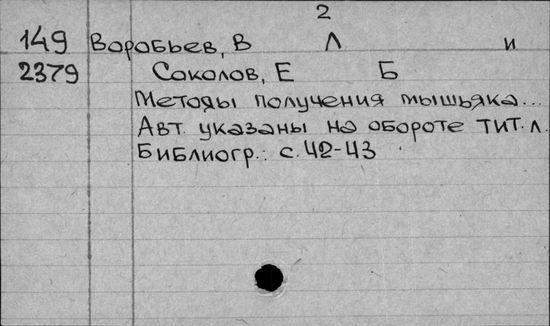 2
149 Воробьев, В Л и
2379 Соколов, Е Б
Методы получения мышьяка...
Авт. указаны на обороте тит. л.
Библиогр.: с. 42-43